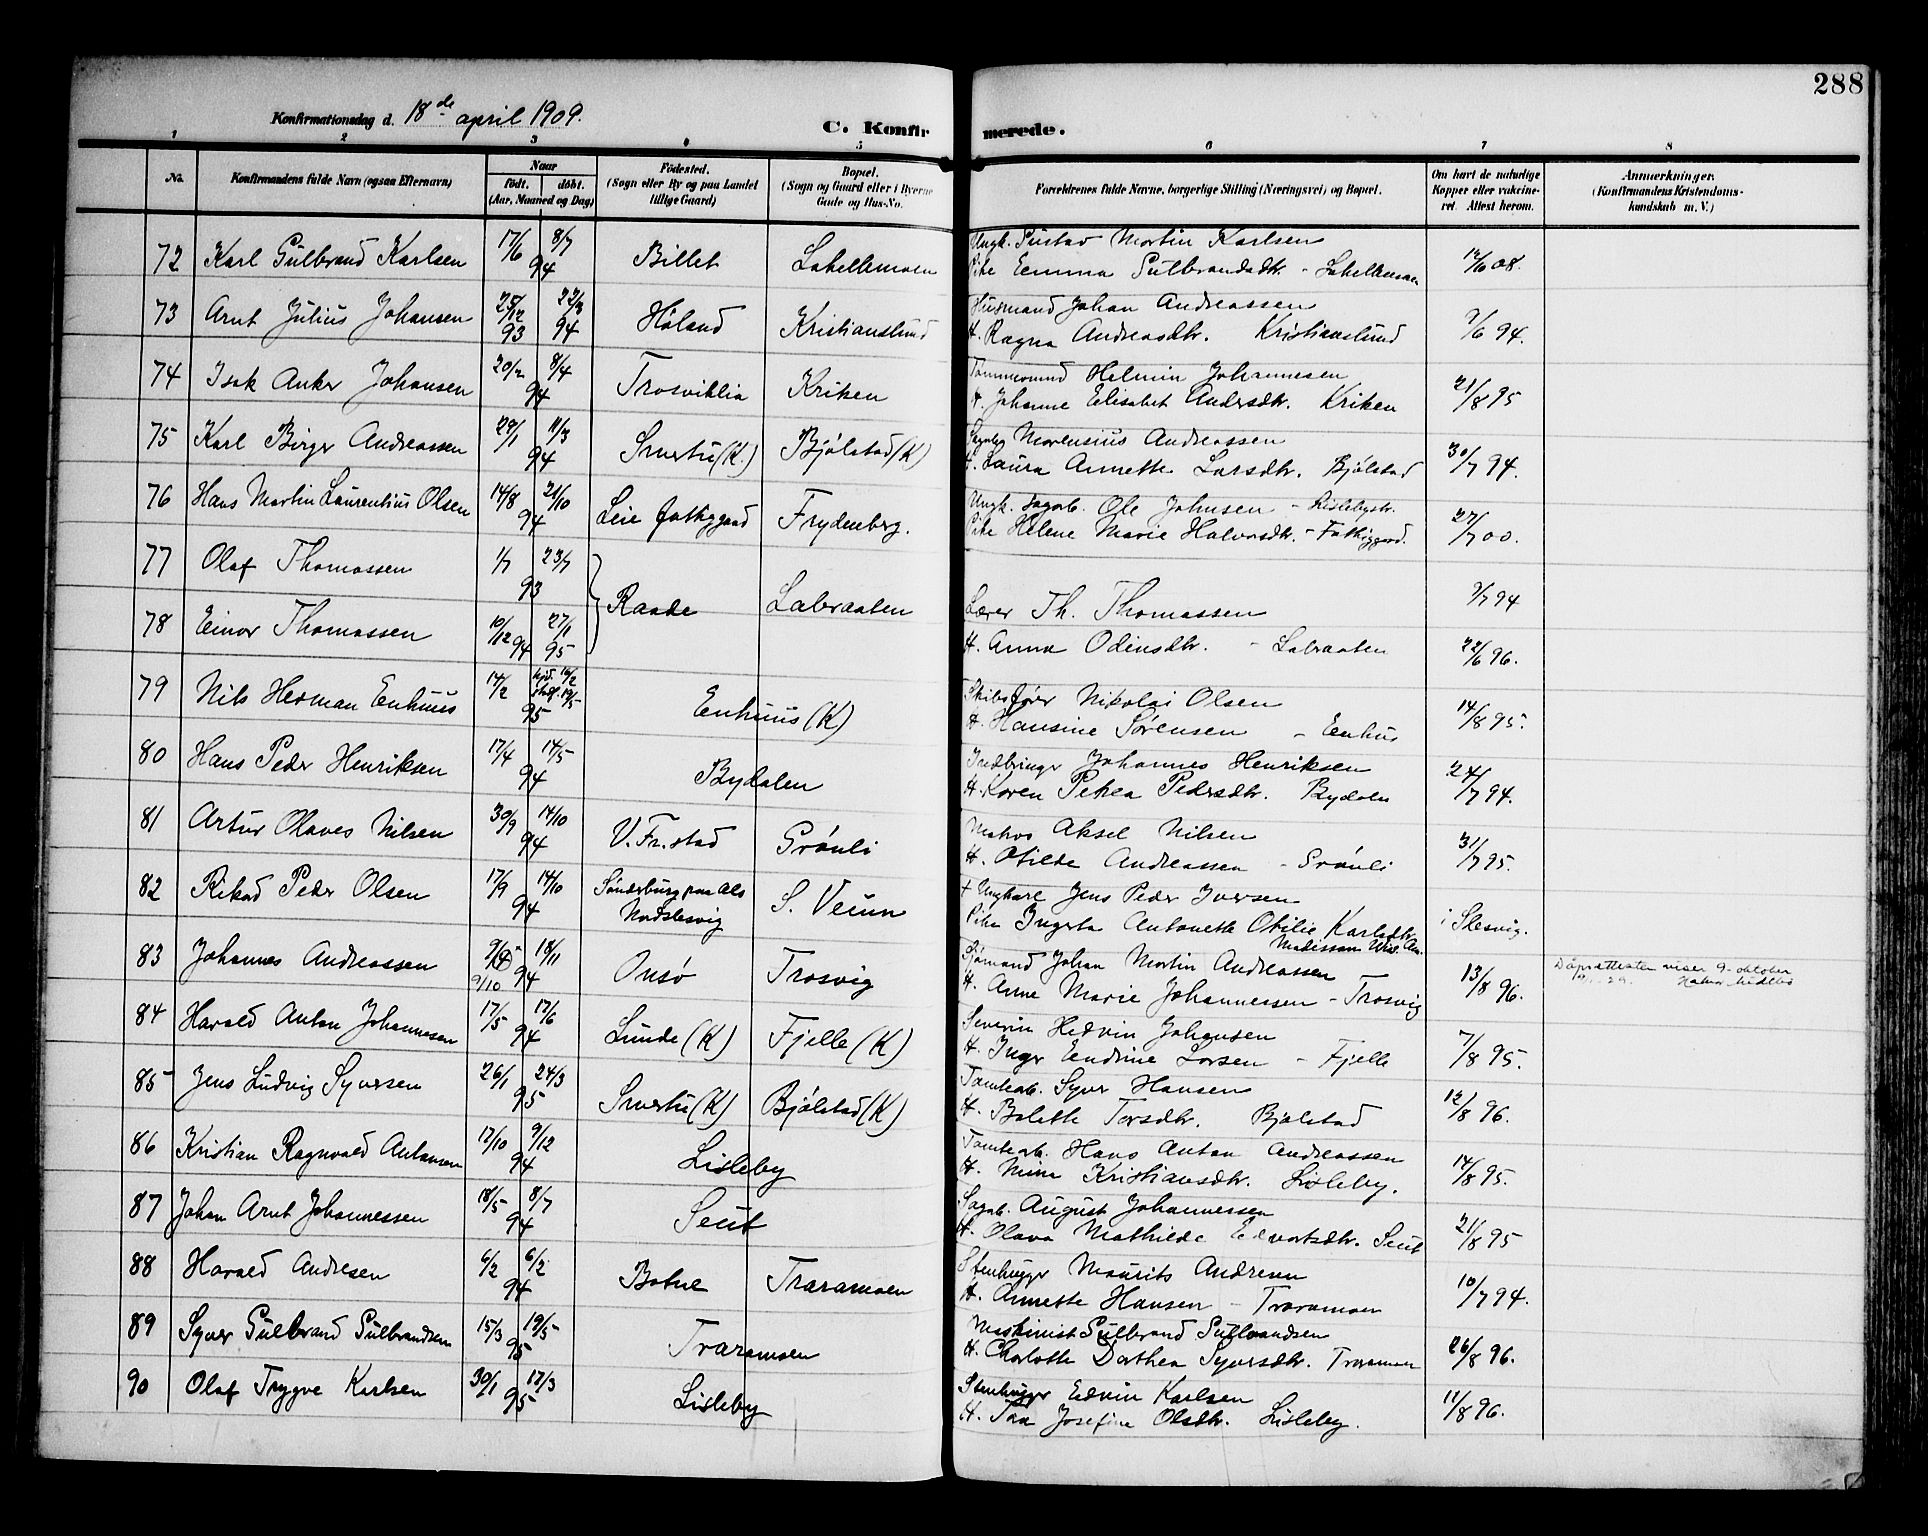 288
Konfirmationsdag d. 18de april 1909.
C. Konfirmerede.
1 2 3 4 5 6 7 8
No. Konfirmandens fulde Navn (ogsaa Efternavn) Naar født. døbt. (Aar, Maaned og Dag) Fødested. (Sogn eller By og paa Landet tillige Gaard) Bopæl. (Sogn og Gaard eller i Byerne Gade og Hus-No. Forældrenes fulde Navne, borgerlige Stilling (Næringsvei) og Bopæl. Om havt de naturlige Kopper eller vaccineret. Attest herom. Anmerkninger. (Konfirmandens Kristendomskundskab m. V.)
72 Karl Gulbrand Karlsen 17/6 8/7 94 Billet Labellemoen Ungk. Gustav Martin Karlsen 12/6 08.
Pike Emma Gulbrandsdtr. - Labellemoen
73 Arnt Julius Johansen 25/12 93 22/3 94 Høland Kristianslund Husmand Johan Andreassen 9/6 94.
H. Ragna Andreasdtr. Kristianslund
74 Isak Anker Johansen 20/2 8/4 94 Trosviklia Kriken Tømmermand Helmin Johannesen 21/8 95
H. Johanne Elisabet Andersdtr. Kriken
75 Karl Birger Andreassen 29/1 11/3 94 Smertu (K.) Bjølstad (K) Sagarb. Morensius Andreassen 30/7 94.
H. Laura Annette Larsdtr. Bjølstad
76 Hans Martin Laurentius Olsen 14/8 21/10 94 Leie fattiggaard Frydenberg. Ungk. Sagarb. Ole Johnsen - Lislebystr. 27/7 00.
Pike Helene Marie Halvorsdtr. - Fattiggard.
77 Olaf Thomassen 1/7 23/7 93 Raade Labraaten Lærer Th. Thomassen 9/7 94
78 Einar Thomassen 10/12 94 27/1 95 H. Anna Odinsdtr. - Labraaten 22/6 96.
79 Nils Herman Enhuus 14/2 hjd. 16/2 stadf. 19/5 95 Enhuus (K) Skibsfører Nikolai Olsen 14/8 95.
H. Hansine Sørensen - Enhus
80 Hans Peder Henriksen 17/4 14/5 94 Bydalen Indbringer Johannes Henriksen 24/7 94.
H. Karen Petrea Pedersdtr. Bydalen
81 Artur Olaves Nilsen 30/9 14/10 94 V. Fr.stad Grønli Matros Aksel Nilsen 31/7 95.
H. Otilde Andreassen - Grønli
82 Rikard Peder Olsen 17/9 14/10 94 Sønderburg paa Als Nordslesvig S. Veum + Ungkarl Jens Peder Iversen i Slesvig.
Pike Ingerta Antonette Otilie Karlsdtr.
Madisson Wisc. Am.
83 Johannes Andreassen 9/10 18/11 94 Onsø Trosvig Sjømand Johan Martin Andreassen 13/8 96. Dåpsattesten viser 9. oktober
H. Anne Marie Johannessen - Trosvig
84 Harald Anton Johannesen 17/5 17/6 94 Lunde (K) Fjelle (K) Severin Hedvin Johansen 7/8 95.
H. Inger Endrine Larsen - Fjelle
85 Jens Ludvig Syversen 26/1 24/3 95 Smertu (K) Bjølstad (K) Tomtearb. Syver Hansen 12/8 96.
H. Bolette Torsdtr. Bjølstad
86 Kristian Ragnvald Antonsen 17/10 9/12 94 Lisleby Tomtearb. Hans Anton Andreassen 14/8 95.
H. Mina Kristiansdtr. Lisleby.
87 Johan Arnt Johannessen 18/5 8/7 94 Seut Sagarb. August Johannessen 21/8 95
H. Olava Mathilde Edvartsdtr. Seut
88 Harald Andresen 6/2 6/2 94 Botne Traramoen Stenhugger Maurits Andresen 10/7 94.
H. Annette Hansen - Traramoen
89 Syver Gulbrand Gulbrandsen 15/3 19/5 95 Traramoen Maskinist Gulbrand Gulbrandsen 26/8 96.
H. Charlotte Dorthea Syversdtr. Traramoen
90 Olaf Trygve Karlsen 30/1 17/3 95 Lisleby Stenhugger Edvin Karlsen 11/8 96.
H. Josefine Olsdtr. Lisleby.